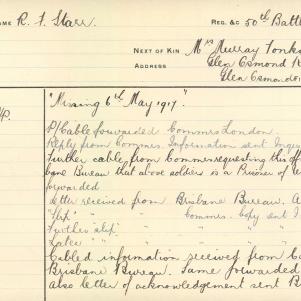 NAME R. F. Starr. REG. &c 50th Battn
NEXT OF KIN Mrs Murray Tonk
ADDRESS Glen Osmond R
Glen Osmond
"Missing 6th May 1917."
P/Cable forwarded Commrs London.
Reply from Commrs. Information sent Inqu
Further cable from Commrs requesting this off
bane Bureau that above soldier is Prisoner of
forwarded
Letter received from Brisbane Bureau. A
"Slip" " Commrs. Copy sent
Further slip " " "
Later " " " " "
Cabled information received from Co
Brisbane Bureau. Same forwarded
also letter of acknowledgement sent B